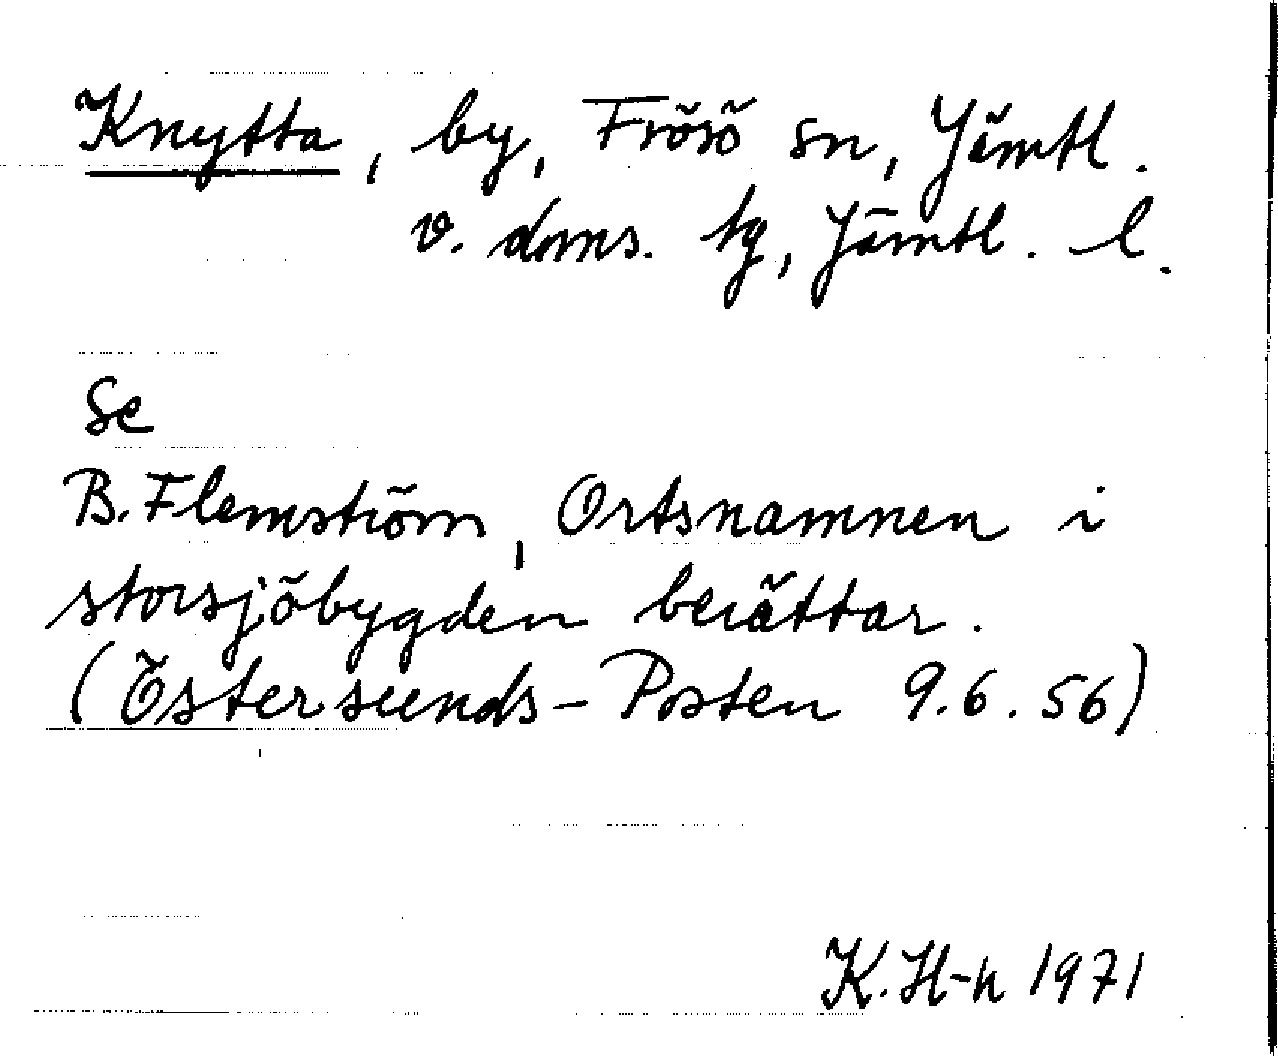 Knytta, by, Frösö sn, Jämtl.
v. doms. tg, Jämtl. l.
Se
B. Flemström, Ortsnamnen i
storsjöbygden berättar.
(Östersunds-Posten 9.6.56)
K. H-n 1971